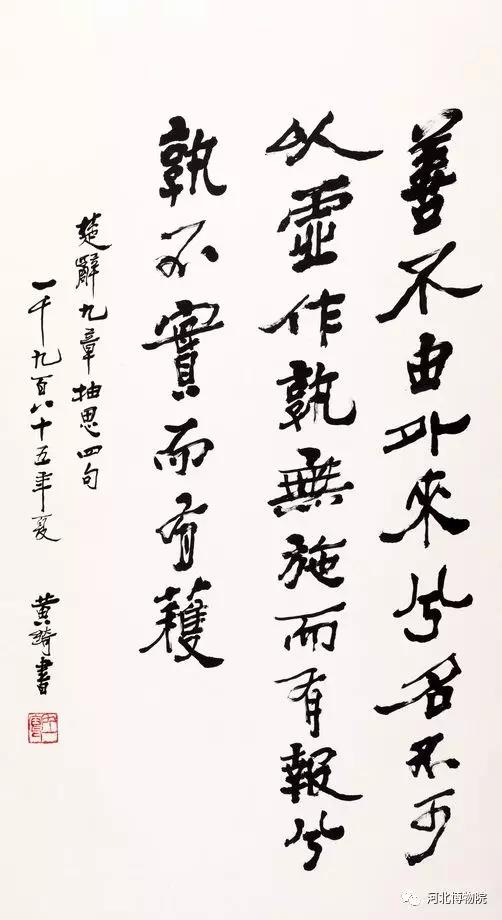 善不由外來兮名不可
以虛作孰無施而有報兮
孰不實而有穫
楚辭九章抽思四句
一千九百八十五年夏 黄綺書
河北博物院